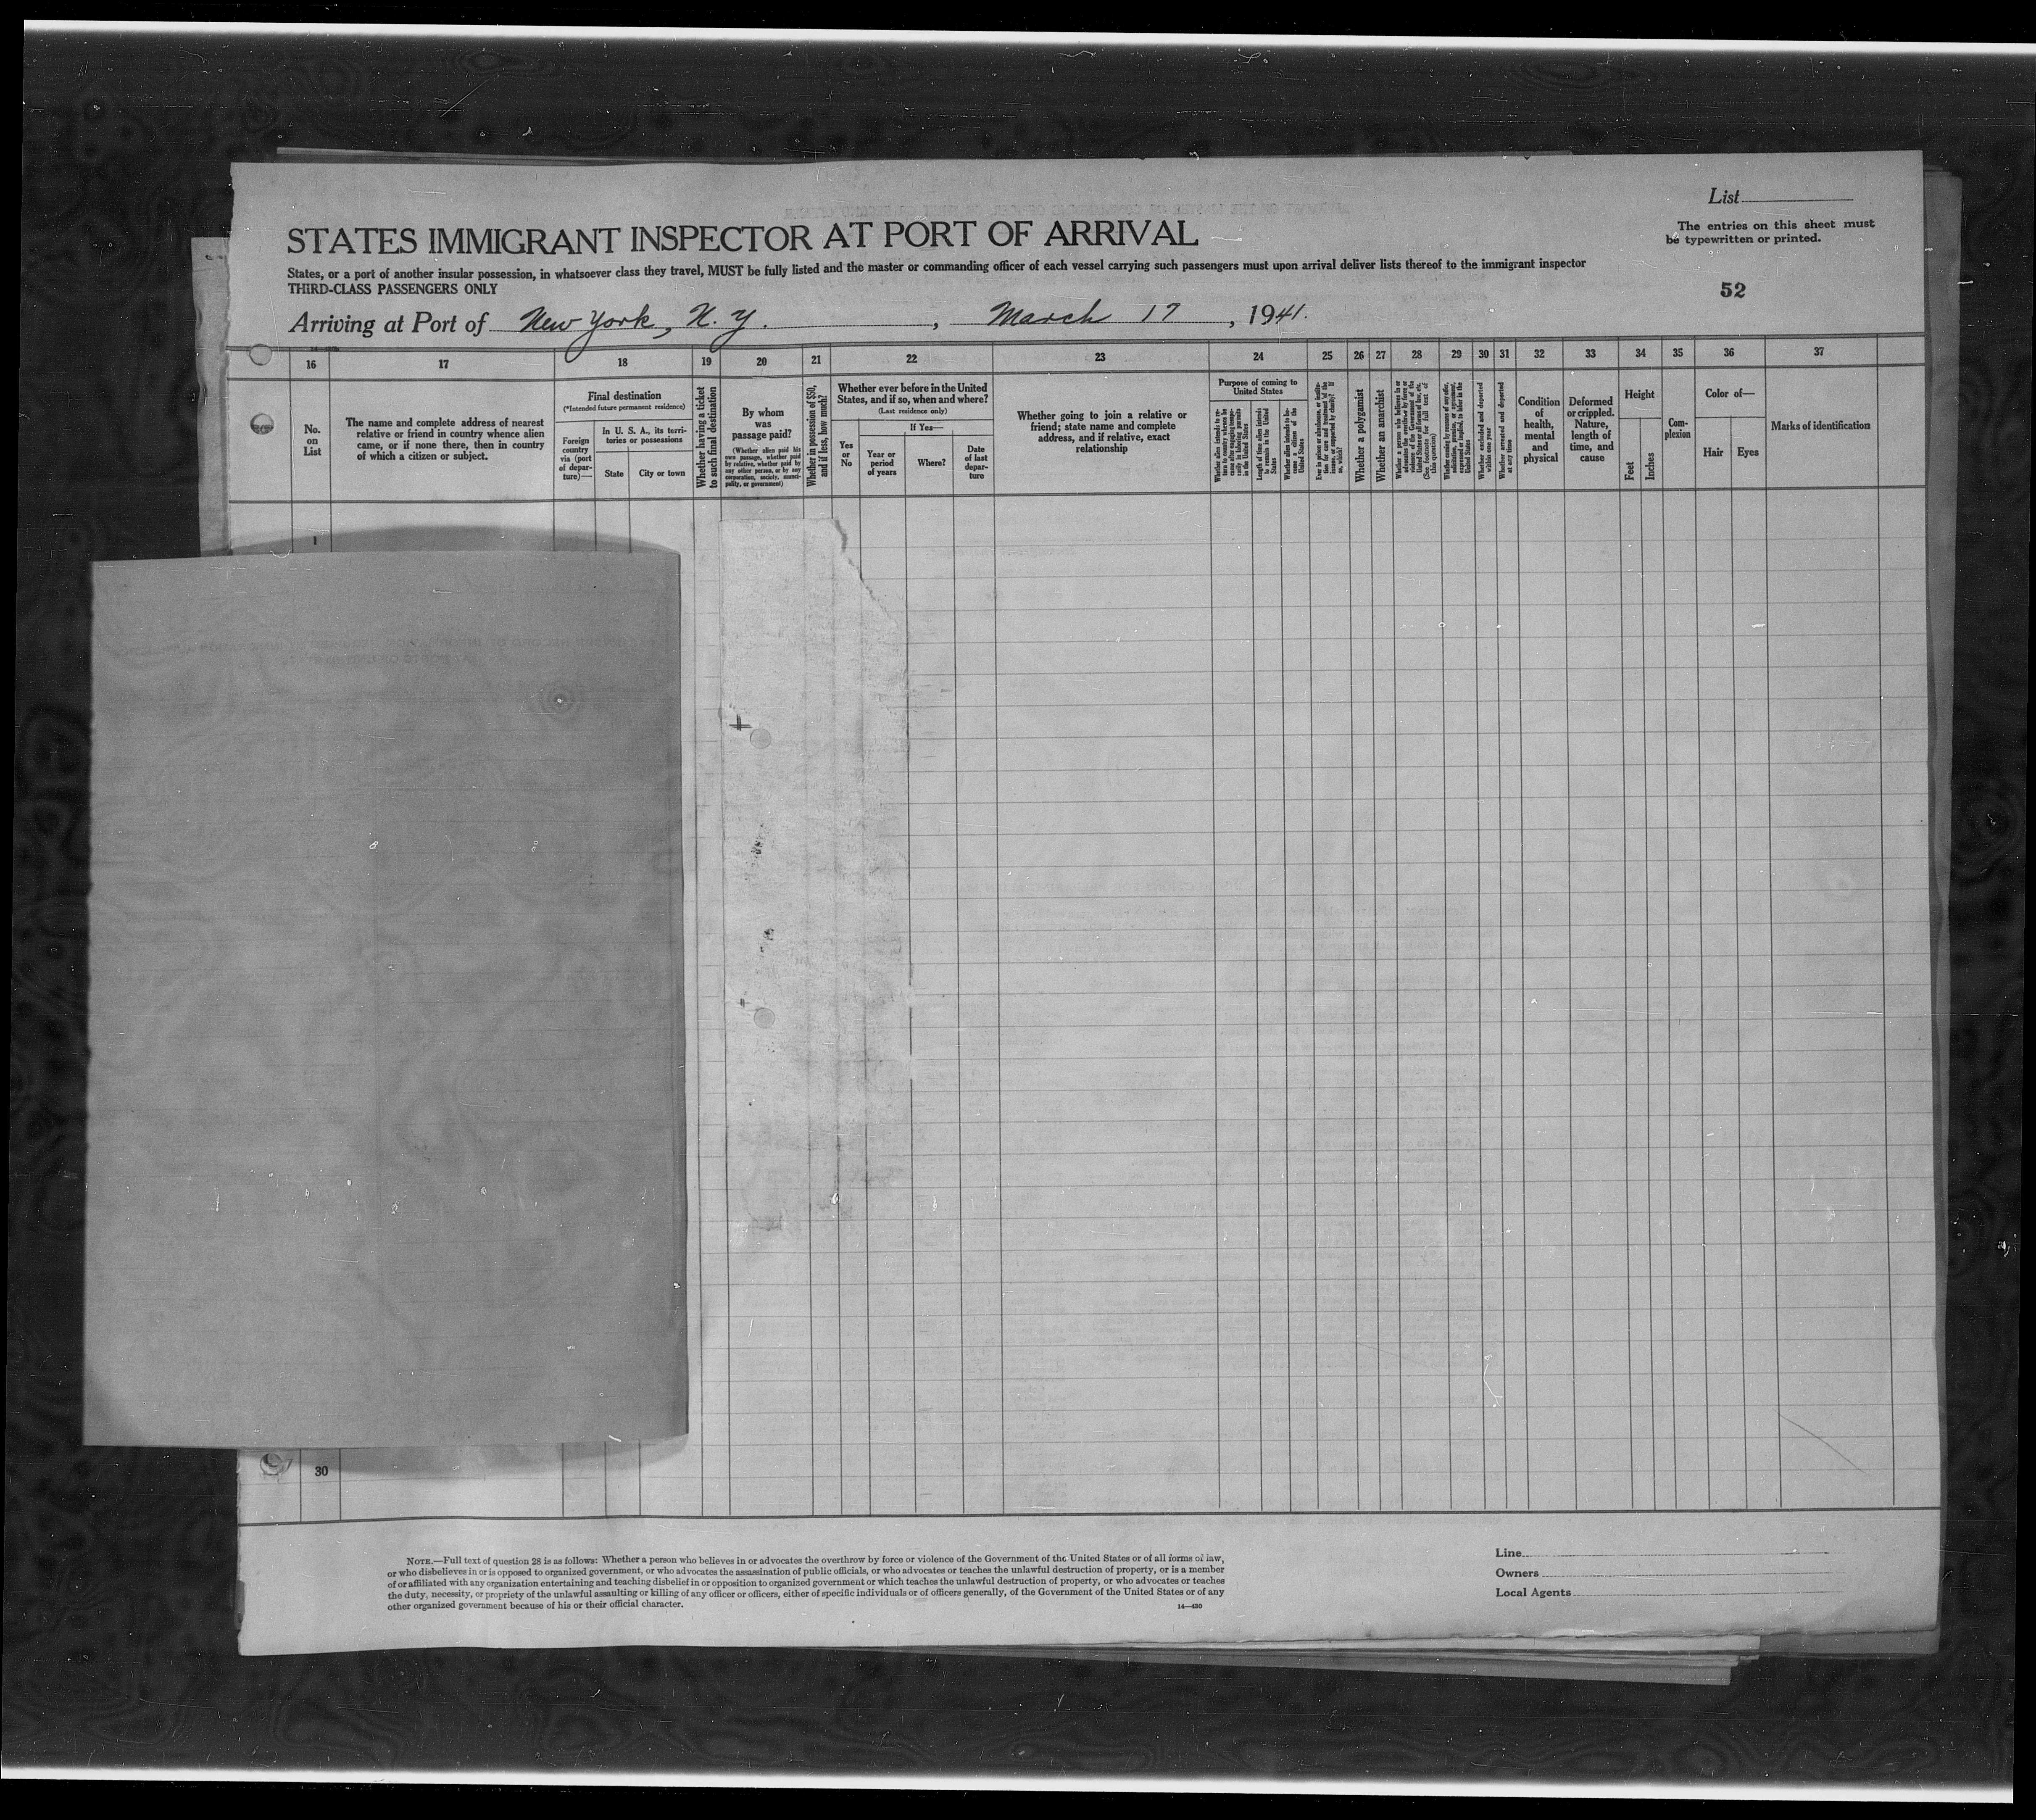 List
The entries on this sheet must
be typewritten or printed.
STATES IMMIGRANT INSPECTOR AT PORT OF ARRIVAL
States, or a port of another insular possession, in whatsoever class they travel, MUST be fully listed and the master or commanding officer of each vessel carrying such passengers must upon arrival deliver lists thereof to the immigrant inspector
THIRD-CLASS PASSENGERS ONLY
52
Arriving at Port of New York, N. Y. , March 17 , 1941.
16 17 18 19 20 21 22 23 24 25 26 27 28 29 30 31 32 33 34 35 36 37
No.
on
List
The name and complete address of nearest
relative or friend in country whence alien
came, or if none there, then in country
of which a citizen or subject.
Final destination
(*Intended future permanent residence)
Foreign
country
via (port
of depar-
ture)—
In U. S. A., its terri-
tories or possessions
State
City or town
Whether having a ticket
to such final destination
By whom
was
passage paid?
(Whether alien paid his
own passage, whether paid
by relative, whether paid by
any other person, or by any
corporation, society, munici-
pality, or government)
Whether in possession of $50,
and if less, how much?
Whether ever before in the United
States, and if so, when and where?
(Last residence only)
Yes
or
No
If Yes—
Year or
period
of years
Where?
Date
of last
depar-
ture
Whether going to join a relative or
friend; state name and complete
address, and if relative, exact
relationship
Purpose of coming to
United States
Length of time alien intends
to remain in the United
States
Whether alien intends to be-
come a citizen of the
United States
Whether a polygamist
Whether an anarchist
Whether excluded and deported
within one year
Whether arrested and deported
at any time
Condition
of
health,
mental
and
physical
Deformed
or crippled.
Nature,
length of
time, and
cause
Height
Feet
Inches
Com-
plexion
Color of—
Hair
Eyes
Marks of identification
1
30
NOTE.—Full text of question 28 is as follows: Whether a person who believes in or advocates the overthrow by force or violence of the Government of the United States or of all forms of law,
or who disbelieves in or is opposed to organized government, or who advocates the assassination of public officials, or who advocates or teaches the unlawful destruction of property, or is a member
of or affiliated with any organization entertaining and teaching disbelief in or opposition to organized government or which teaches the unlawful destruction of property, or who advocates or teaches
the duty, necessity, or propriety of the unlawful assaulting or killing of any officer or officers, either of specific individuals or of officers generally, of the Government of the United States or of any
other organized government because of his or their official character.
14—430
Line
Owners
Local Agents